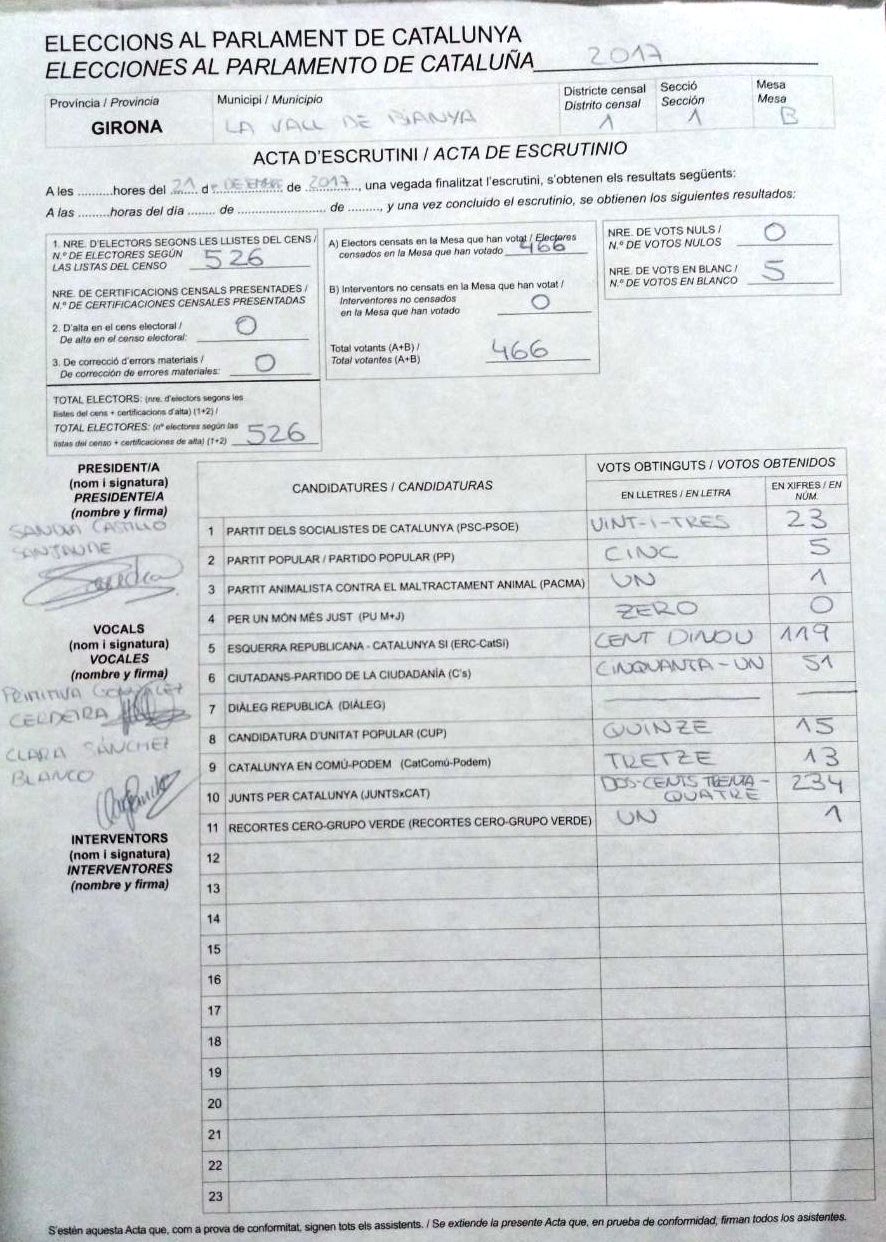 ELECCIONS AL PARLAMENT DE CATALUNYA
ELECCIONES AL PARLAMENTO DE CATALUÑA 2017
Província / Provincia
GIRONA
Municipi / Municipio
LA VALL DE BIANYA
Districte censal
Distrito censal
1
Secció
Sección
1
Mesa
Mesa
B
ACTA D'ESCRUTINI / ACTA DE ESCRUTINIO
A les .........hores del 21 d DESEMBRE de 2017, una vegada finalitzat l'escrutini, s'obtenen els resultats següents:
A las .........horas del día ........ de .......................... de ........., y una vez concluido el escrutinio, se obtienen los siguientes resultados:
1. NRE. D'ELECTORS SEGONS LES LLISTES DEL CENS /
N.º DE ELECTORES SEGÚN
LAS LISTAS DEL CENSO 526
NRE. DE CERTIFICACIONS CENSALS PRESENTADES /
N.º DE CERTIFICACIONES CENSALES PRESENTADAS
2. D'alta en el cens electoral /
De alta en el censo electoral: 0
3. De correcció d'errors materials /
De corrección de errores materiales: 0
TOTAL ELECTORS: (nre. d'electors segons les
llistes del cens + certificacions d'alta) (1+2) /
TOTAL ELECTORES: (nº electores según las
listas del censo + certificaciones de alta) (1+2) 526
A) Electors censats en la Mesa que han votat / Electores
censados en la Mesa que han votado 466
B) Interventors no censats en la Mesa que han votat /
Interventores no censados
en la Mesa que han votado 0
Total votants (A+B) /
Total votantes (A+B) 466
NRE. DE VOTS NULS /
N.º DE VOTOS NULOS 0
NRE. DE VOTS EN BLANC /
N.º DE VOTOS EN BLANCO 5
PRESIDENT/A
(nom i signatura)
PRESIDENTE/A
(nombre y firma)
SANDRA CASTILLO
SANTAUME
VOCALS
(nom i signatura)
VOCALES
(nombre y firma)
PRIMITIVA GONZALEZ
CERDEIRA
CLARA SÁNCHEZ
BLANCO
INTERVENTORS
(nom i signatura)
INTERVENTORES
(nombre y firma)
CANDIDATURES / CANDIDATURAS
VOTS OBTINGUTS / VOTOS OBTENIDOS
EN LLETRES / EN LETRA
EN XIFRES / EN
NÚM.
1 PARTIT DELS SOCIALISTES DE CATALUNYA (PSC-PSOE) VINT-I-TRES 23
2 PARTIT POPULAR / PARTIDO POPULAR (PP) CINC 5
3 PARTIT ANIMALISTA CONTRA EL MALTRACTAMENT ANIMAL (PACMA) UN 1
4 PER UN MÓN MÉS JUST (PU M+J) ZERO 0
5 ESQUERRA REPUBLICANA - CATALUNYA SI (ERC-CatSí) CENT DINOU 119
6 CIUTADANS-PARTIDO DE LA CIUDADANÍA (C's) CINQUANTA-UN 51
7 DIÀLEG REPUBLICÀ (DIÀLEG)
8 CANDIDATURA D'UNITAT POPULAR (CUP) QUINZE 15
9 CATALUNYA EN COMÚ-PODEM (CatComú-Podem) TRETZE 13
10 JUNTS PER CATALUNYA (JUNTSxCAT) DOS-CENTS TRENTA-
QUATRE 234
11 RECORTES CERO-GRUPO VERDE (RECORTES CERO-GRUPO VERDE) UN 1
12
13
14
15
16
17
18
19
20
21
22
23
S'estén aquesta Acta que, com a prova de conformitat, signen tots els assistents. / Se extiende la presente Acta que, en prueba de conformidad, firman todos los asistentes.